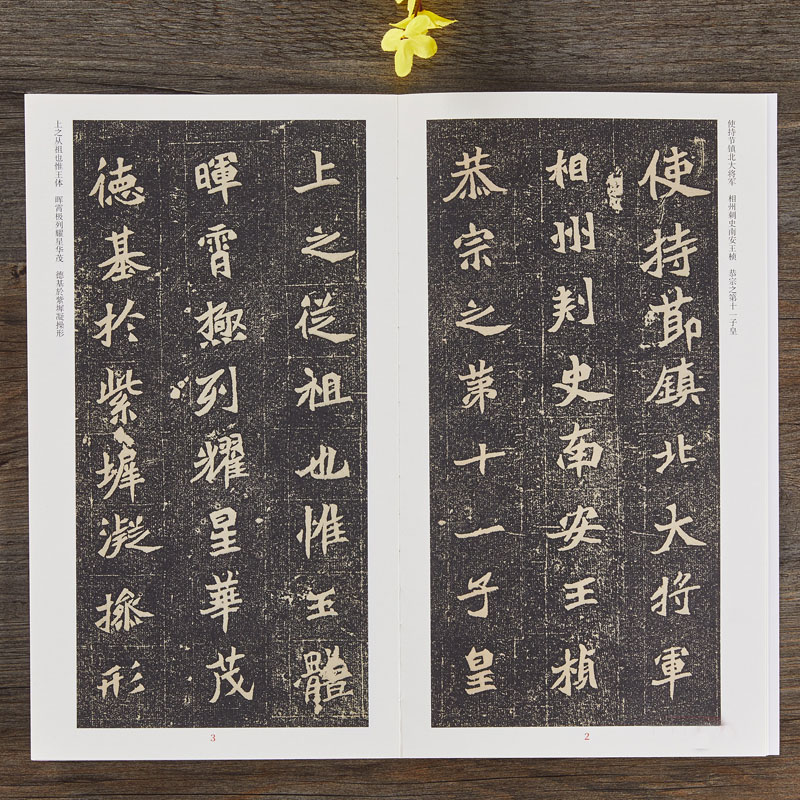 使持节镇北大将军 相州刺史南安王桢 恭宗之第十一子皇
使持節鎮北大将軍
相州刾史南安王楨
恭宗之第十一子皇
2
上之从祖也惟王体 晖霄极列耀星华茂 德基於紫墀凝操形
上之從祖也惟王體
暉霄極列耀星華茂
徳基於紫墀凝操形
3